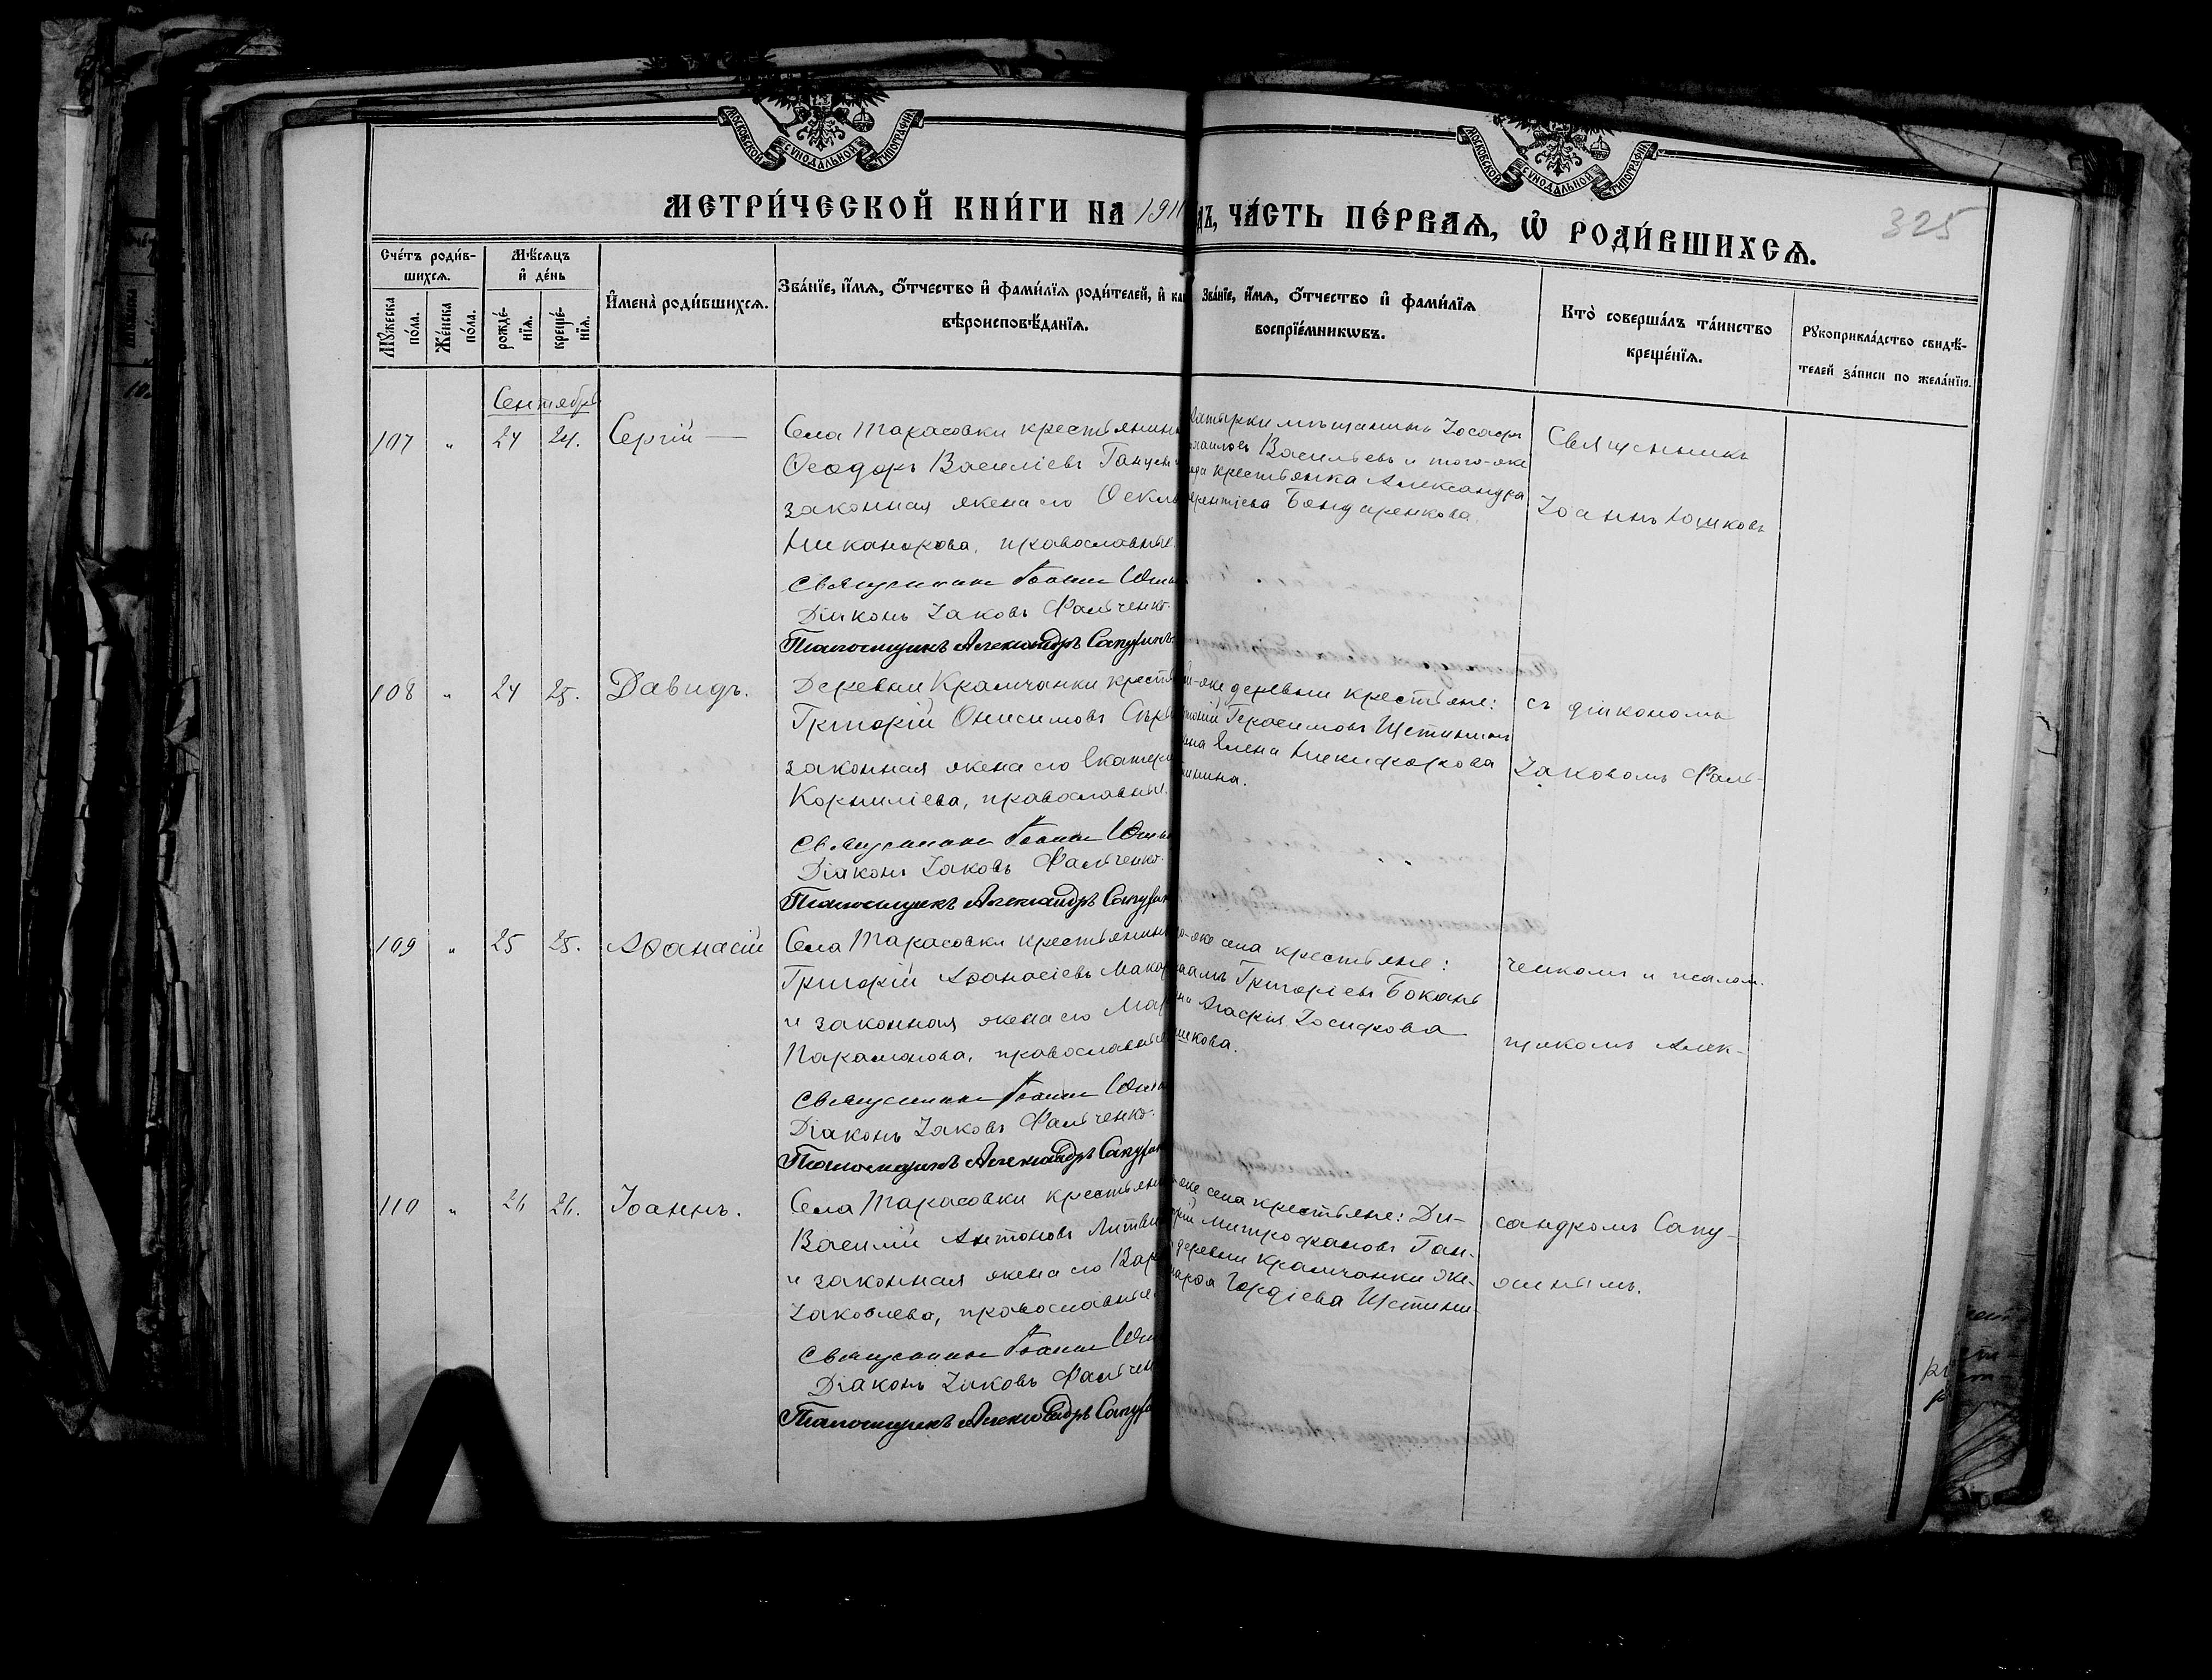 МОСКОВСКОЙ СУНОДАЛЬНОЙ ТИПОГРАФІИ
МОСКОВСКОЙ СУНОДАЛЬНОЙ ТИПОГРАФІИ
МЕТРИ́ЧЕСКОЙ КНИ́ГИ НА 191
ДЪ, ЧА́СТЬ ПЕ́РВАѦ, Ѡ҆ РОДИ́ВШИХСѦ.
325
Сче́тъ роди́в-
шихсѧ.
Мꙋ́жеска
по́ла.
Же́нска
по́ла.
Мѣ́сѧцъ
и҆ де́нь
рожде́-
нїѧ.
креще́-
нїѧ.
И҆мена̀ роди́вшихсѧ.
Зва́нїе, и҆́мѧ, ѻ҆́тчество и҆ фами́лїѧ роди́телей, и҆ как
вѣроисповѣ́данїѧ.
Зва́нїе, и҆́мѧ, ѻ҆́тчество и҆ фами́лїѧ
воспрїе́мникωвъ.
Кто̀ соверша́лъ та́инство
креще́нїѧ.
Рꙋкоприкла́дство свидѣ́-
телей за́писи по жела́нїю.
Сентябрь
107 " 24 24. Сергій —
Села Тарасовки крестьянинъ
Ѳеодоръ Василіевъ
законная жена его Ѳекл
Никанорова, православные.
Священникъ Іоаннъ Юшк
Діаконъ Іаковъ Фальченко.
Псаломщикъ Александръ Сапужинъ
мѣщанинъ Іосафъ
Васильевъ и того-же
крестьянка Александра
Бондаренкова.
Священникъ
Іоаннъ Юшковъ
108 " 24 25. Давидъ.
Деревни Крамчанки крест
Григорій Онисимовъ
законная жена его Екатери
Корниліева, православные.
Священникъ Іоаннъ Юшк
Діаконъ Іаковъ Фальченко.
Псаломщикъ Александръ Сапужин
-же деревни крестьяне:
Герасимовъ Щетининъ
Елена Никифорова
нина.
съ діакономъ
Іаковомъ Фаль-
109 " 25 25. Аѳанасій
Села Тарасовки крестьянинъ
Григорій Аѳанасіевъ Макар
и законная жена его Мар
Парамонова, православные
Священникъ Іоаннъ Юшк
Діаконъ Іаковъ Фальченко.
Псаломщикъ Александръ Сапужин
-же села крестьяне:
Григорьевъ Боканъ
Агафія Іосифова
шкова.
ченкомъ и псалом-
щикомъ Алек-
110 " 26 26. Іоаннъ.
Села Тарасовки крестьянин
Василій Антоновъ Литви
и законная жена его Вар
Іаковлева, православные
Священникъ Іоаннъ Юш
Діаконъ Іаковъ Фальчен
Псаломщикъ Александръ Сапуж
же села крестьяне: Ди-
Митрофановъ Ган-
деревни Крамчанки же-
Гордіева Щетини-
сандромъ Сапу-
жинымъ.